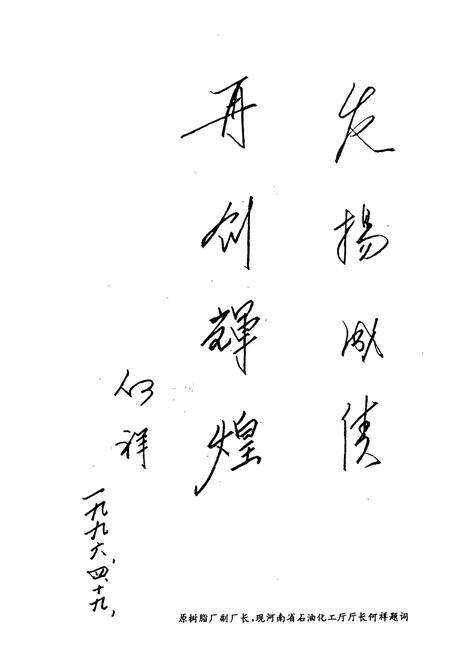 发揚成绩
再创輝煌
何祥
一九九六、四、十九、
原树脂厂副厂长,现河南省石油化工厅厅长何祥题词